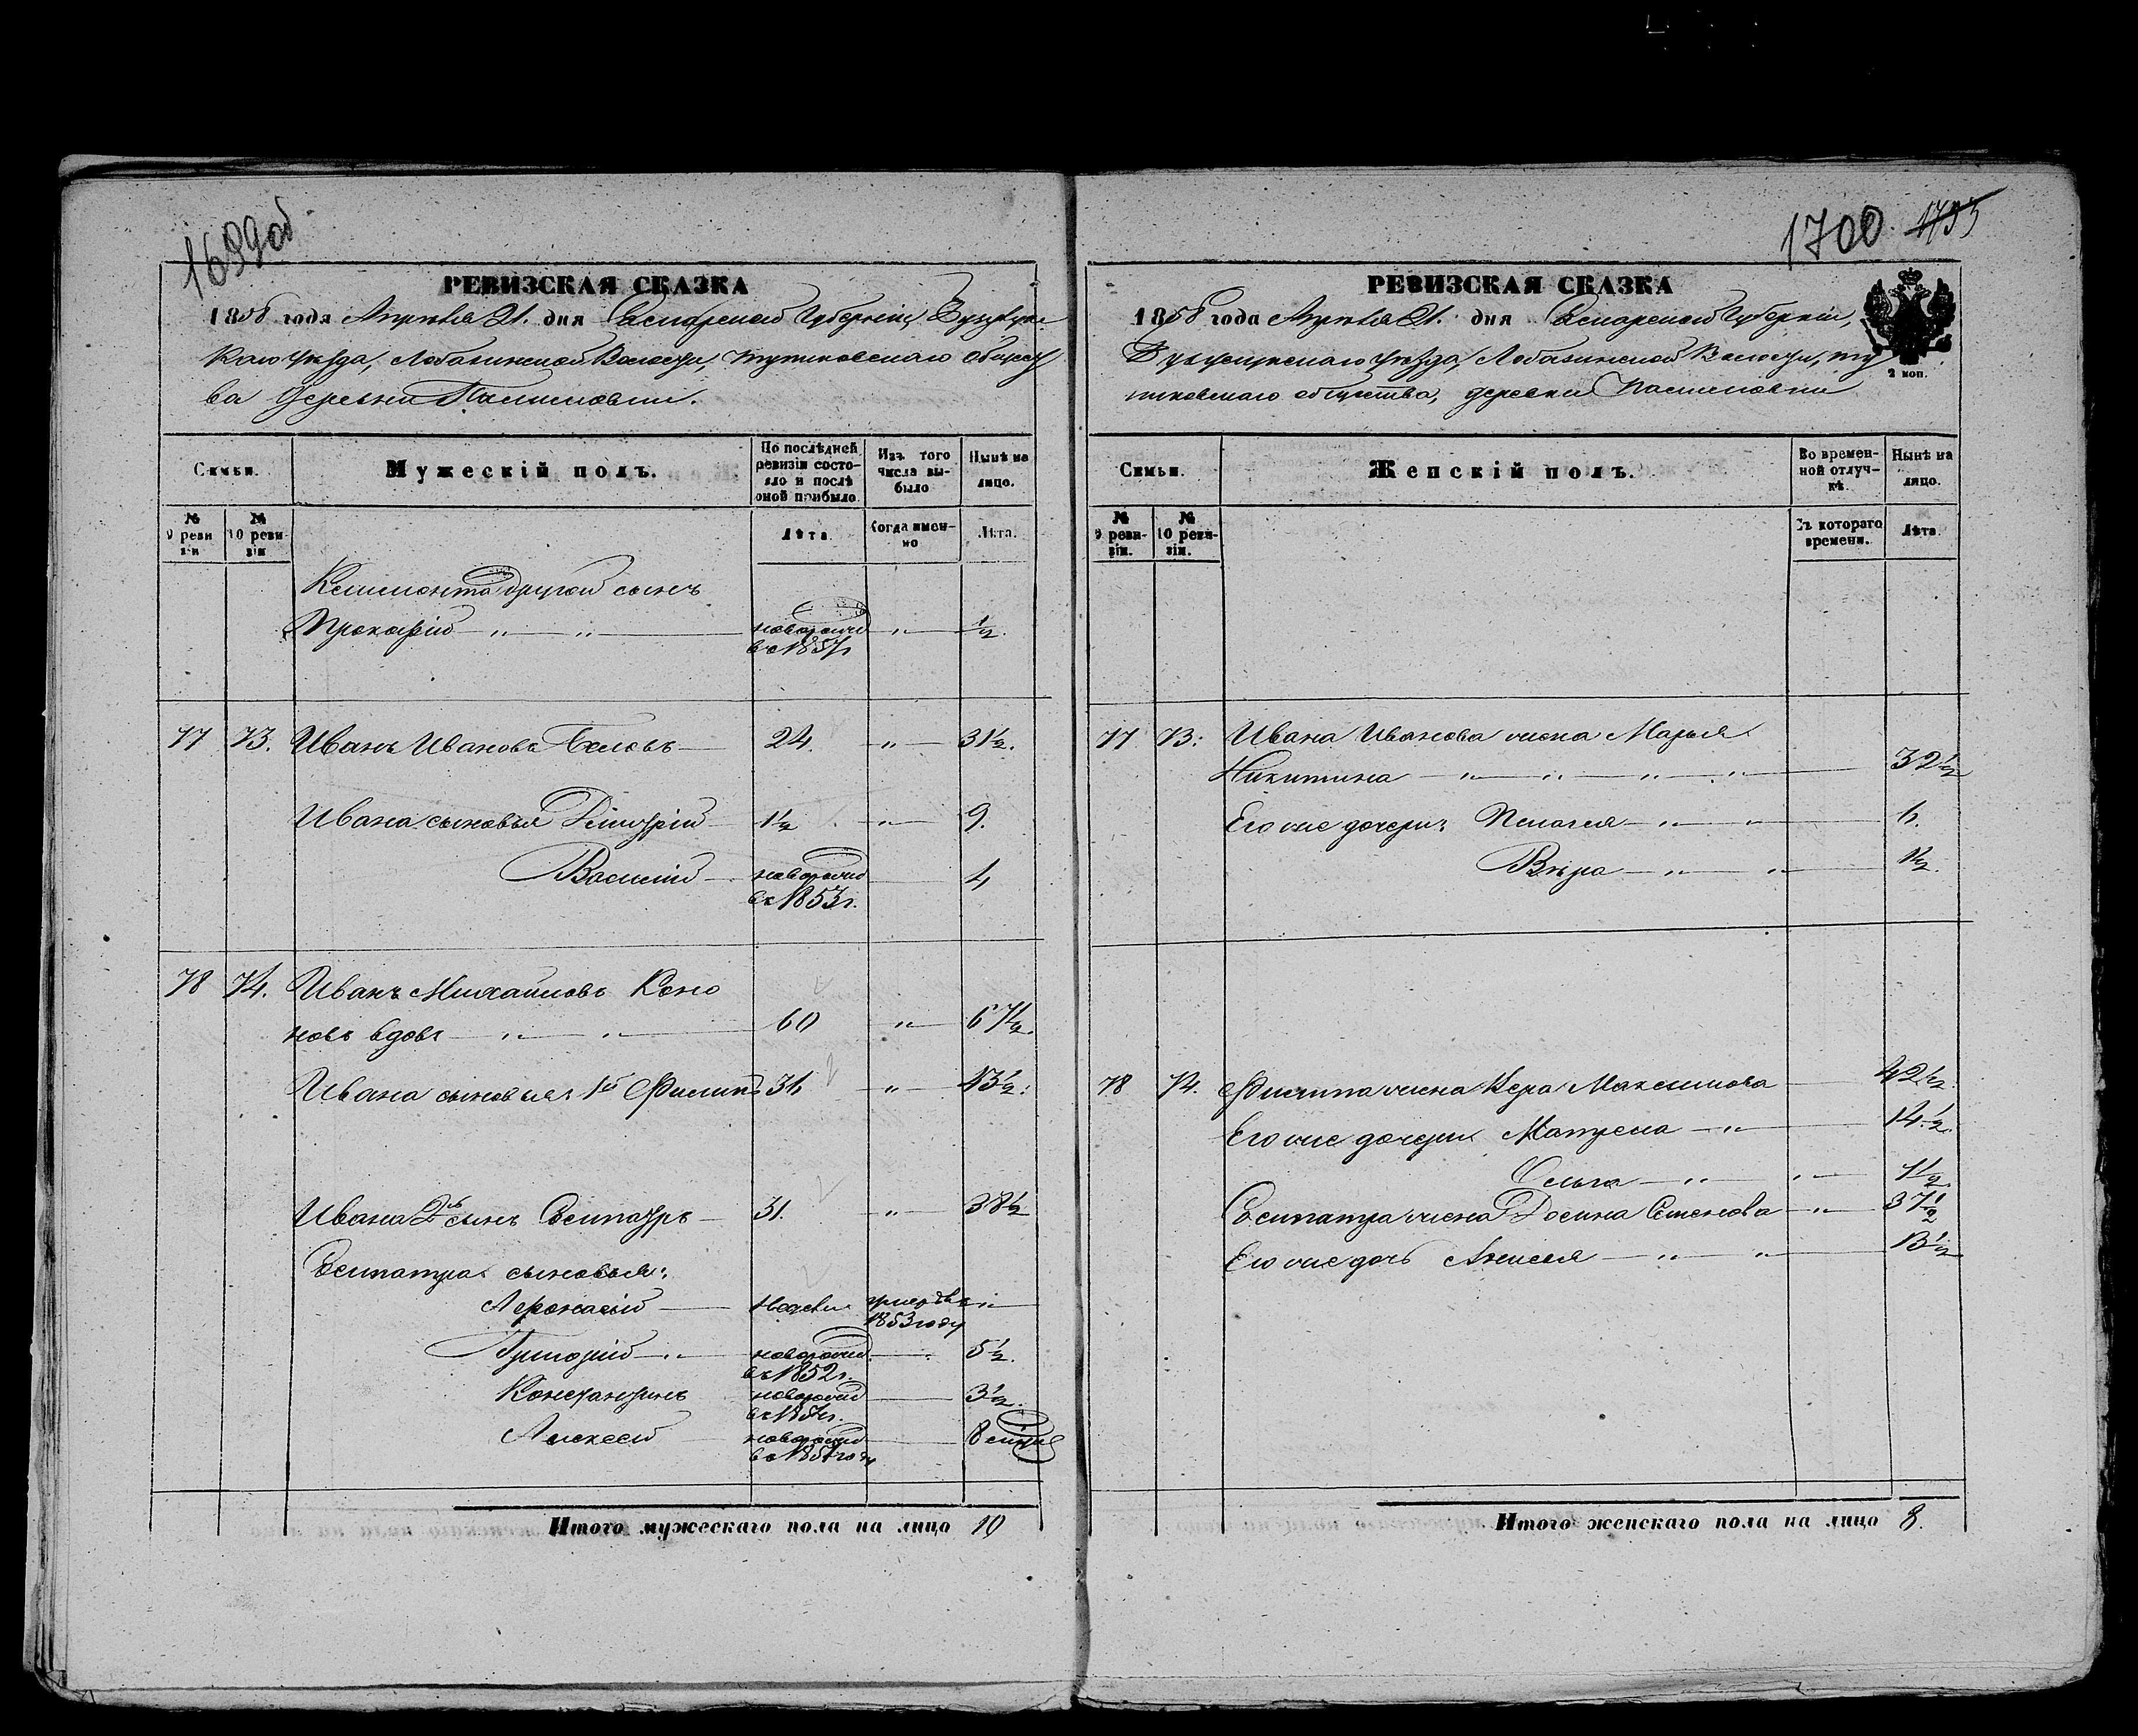 1699об
РЕВИЗСКАЯ СКАЗКА
1858 года Апрѣля 21. дня Самарской Губерніи Бузулук
каго уѣзда, Лобазинской Волости, тупиковскаго общест
ва деревни
Семьи.
Мужескій полъ.
По послѣдней ревизіи состояло и послѣ оной прибыло.
Изъ того числа выбыло
Нынѣ на лицо.
№ 9 ревизіи
№ 10 ревизіи
Лѣта.
Когда именно
Лѣта.
другой сынъ
Прокофій — „ — „ — новорожд въ 1857г — „ — ½.
77 73. Иванъ Ивановъ Бѣловъ — 24. — „ — 31½.
Ивана сыновья Дмитрій — 1½ — „ — 9.
Василій — новорожд въ 1853г. — 4
78 74. Иванъ Михайловъ Коно
новъ вдовъ — „ — „ — 60 — „ — 67½.
Ивана сыновья: 1й Филипъ 36 — „ — 43½:
Ивана 2й сынъ Сосипатръ — 31. — „ — 38½
Сосипатра сыновья:
Афонасій — 1853 году
Григорій — „ новорожд въ 1852г. — 5½.
Константинъ новорожд въ 1854г. — 3½.
Алексей новорожд въ 1857 году — 8
Итого мужескаго пола на лицо 10
1700. 1795
РЕВИЗСКАЯ СКАЗКА
1858 года Апрѣля 21. дня Самарской Губерніи,
Бузулукскаго уѣзда, Лобазинской Волости, ту
пиковскаго общества, деревни
2 коп.
Семьи.
Женскій полъ.
Во временной отлучкѣ.
Нынѣ на лицо.
№ 9 ревизіи.
№ 10 ревизіи.
Съ котораго времени.
Лѣта.
77 73: Ивана Иванова жена Марья
Никитина — „ — „ — „ — „ — 32½
Его же дочери: Пелагея — „ — „ — 6.
Вѣра — „ — „ — 1½.
78 74. Филипа жена Вера Максимова — 42½.
Его же дочери Матрена — „ — 14½.
Ольга — „ — „ — 1½
Сосипатра жена Семенова — „ — 37½
Его же дочь Анисья — „ — „ — 13½
Итого женскаго пола на лицо 8.